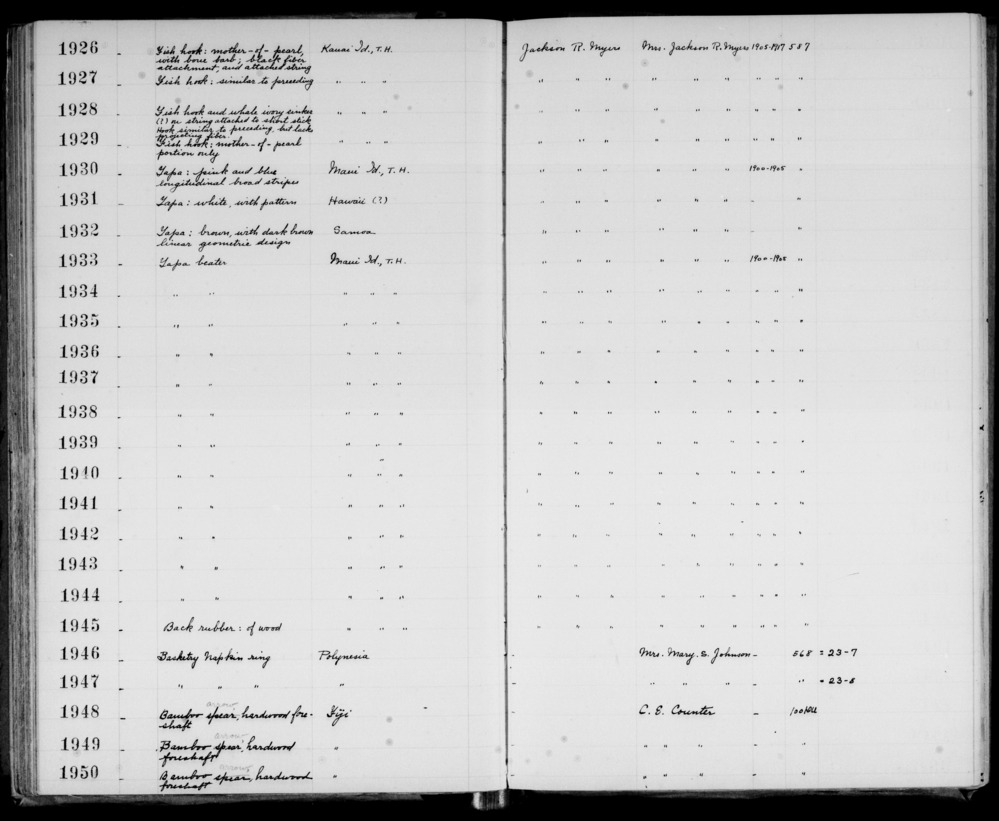 1926 - Fish hook: mother-of-pearl, Kauai Id., T.H. Jackson R. Myers Mrs. Jackson R. Myers 1905-1917 587
with bone barb; black fiber
attachment, and attached string
1927 - Fish hook: similar to preceding " " " " " " " " " " " "
1928 - Fish hook and whale ivory sinker " " " " " " " " " " " "
(?) on string attached to short stick
Hook similar to preceding, but lacks
projecting fiber.
1929 - Fish hook: mother-of-pearl " " " " " " " " " " " "
portion only
1930 - Tapa: pink and blue Maui Id., T.H. " " " " " " 1900-1905 "
longitudinal broad stripes
1931 - Tapa: white, with pattern Hawaii (?) " " " " " " - "
1932 - Tapa: brown, with dark brown Samoa " " " " " " - "
linear geometric design
1933 - Tapa beater Maui Id., T.H. " " " " " " 1900-1905 "
1934 - " " " " " " " " " " " " " "
1935 - " " " " " " " " " " " " " "
1936 - " " " " " " " " " " " " " "
1937 - " " " " " " " " " " " " " "
1938 - " " " " " " " " " " " " " "
1939 - " " " " " " " " " " " " " "
1940 - " " " " " " " " " " " " " "
1941 - " " " " " " " " " " " " " "
1942 - " " " " " " " " " " " " " "
1943 - " " " " " " " " " " " " " "
1944 - " " " " " " " " " " " " " "
1945 - Back rubber: of wood " " " " " " " " " " " "
1946 - Basketry Napkin ring Polynesia - Mrs. Mary. S. Johnson - 568 = 23-7
1947 - " " " " - " " " - " = 23-8
arrow
1948 - Bamboo spear, hardwood fore- Fiji - C. E. Counter -
shaft
arrow
1949 - Bamboo spear, hardwood " - " " " - "
foreshaft
arrow
1950 - Bamboo spear, hardwood " - " " " - "
foreshaft